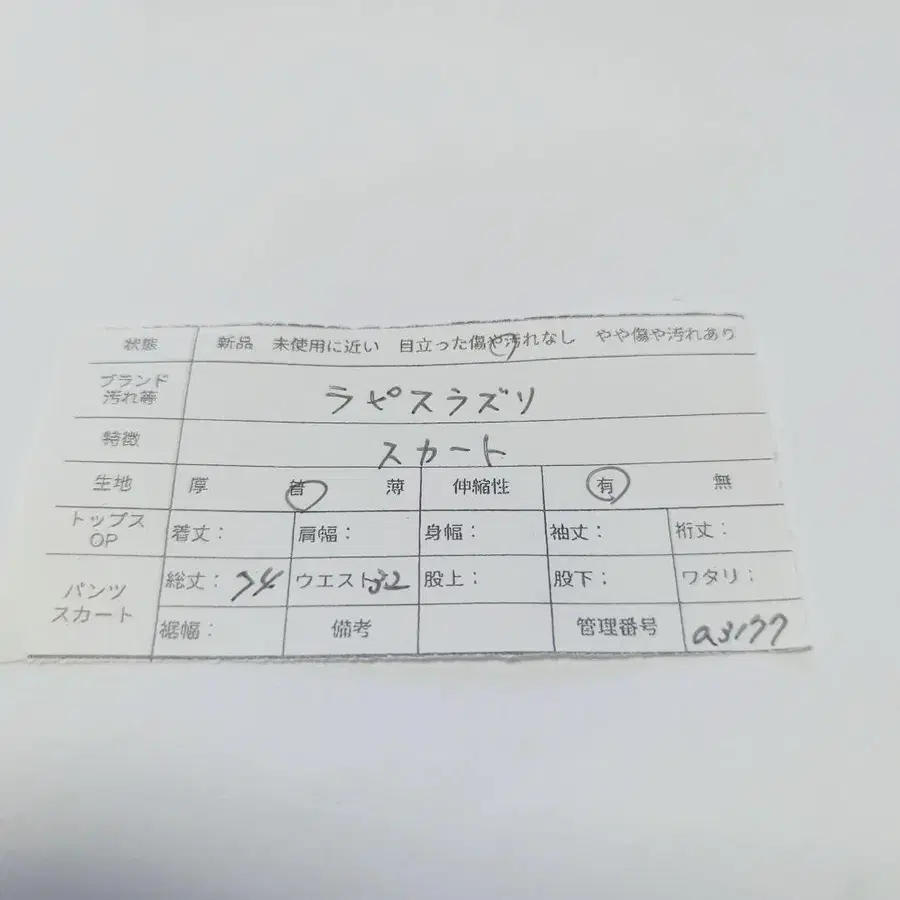 状態 新品 未使用に近い 目立った傷や汚れなし やや傷や汚れあり
ブランド
汚れ等 ラピスラズリ
特徴 スカート
生地 厚 普 薄 伸縮性 有 無
トップス
OP 着丈： 肩幅： 身幅： 袖丈： 裄丈：
パンツ
スカート 総丈：74 ウエスト32 股上： 股下： ワタリ：
裾幅： 備考 管理番号 a3177